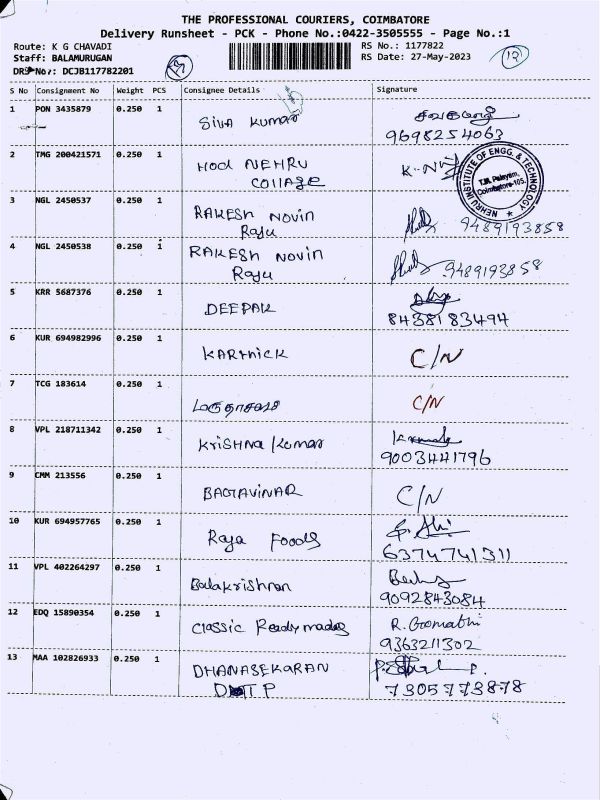 THE PROFESSIONAL COURIERS, COIMBATORE
Delivery Runsheet - PCK - Phone No.:0422-3505555 - Page No.:1
Route: K G CHAVADI
RS No.: 1177822
Staff: BALAMURUGAN
RS Date: 27-May-2023
DRS No.: DCJB117782201
S No Consignment No Weight PCS Consignee Details Signature
1 PON 3435879 0.250 1 Siva Kumar
9698254063
2 TMG 200421571 0.250 1 Hod NEHRU
COllAGE
NEHRU INSTITUTE OF ENGG. & TECHNOLOGY
T.M. Palayam,
Coimbatore-105.
3 NGL 2450537 0.250 1 RAKESH Novin
Raju 9489193858
4 NGL 2450538 0.250 1 RAKESH Novin
Raju 9489193858
5 KRR 5687376 0.250 1 DEEPAK
8438183494
6 KUR 694982996 0.250 1 KARTHICK C/N
7 TCG 183614 0.250 1 C/N
8 VPL 218711342 0.250 1 KRiSHNa Kumar
9003441796
9 CMM 213556 0.250 1 C/N
10 KUR 694957765 0.250 1 Raja Foods
6374741311
11 VPL 402264297 0.250 1 Balakrishnan
9092843084
12 EDQ 15890354 0.250 1 Classic Readymades R. Gomathi
9363211302
13 MAA 102826933 0.250 1 DHANASEKARAN
7305773878